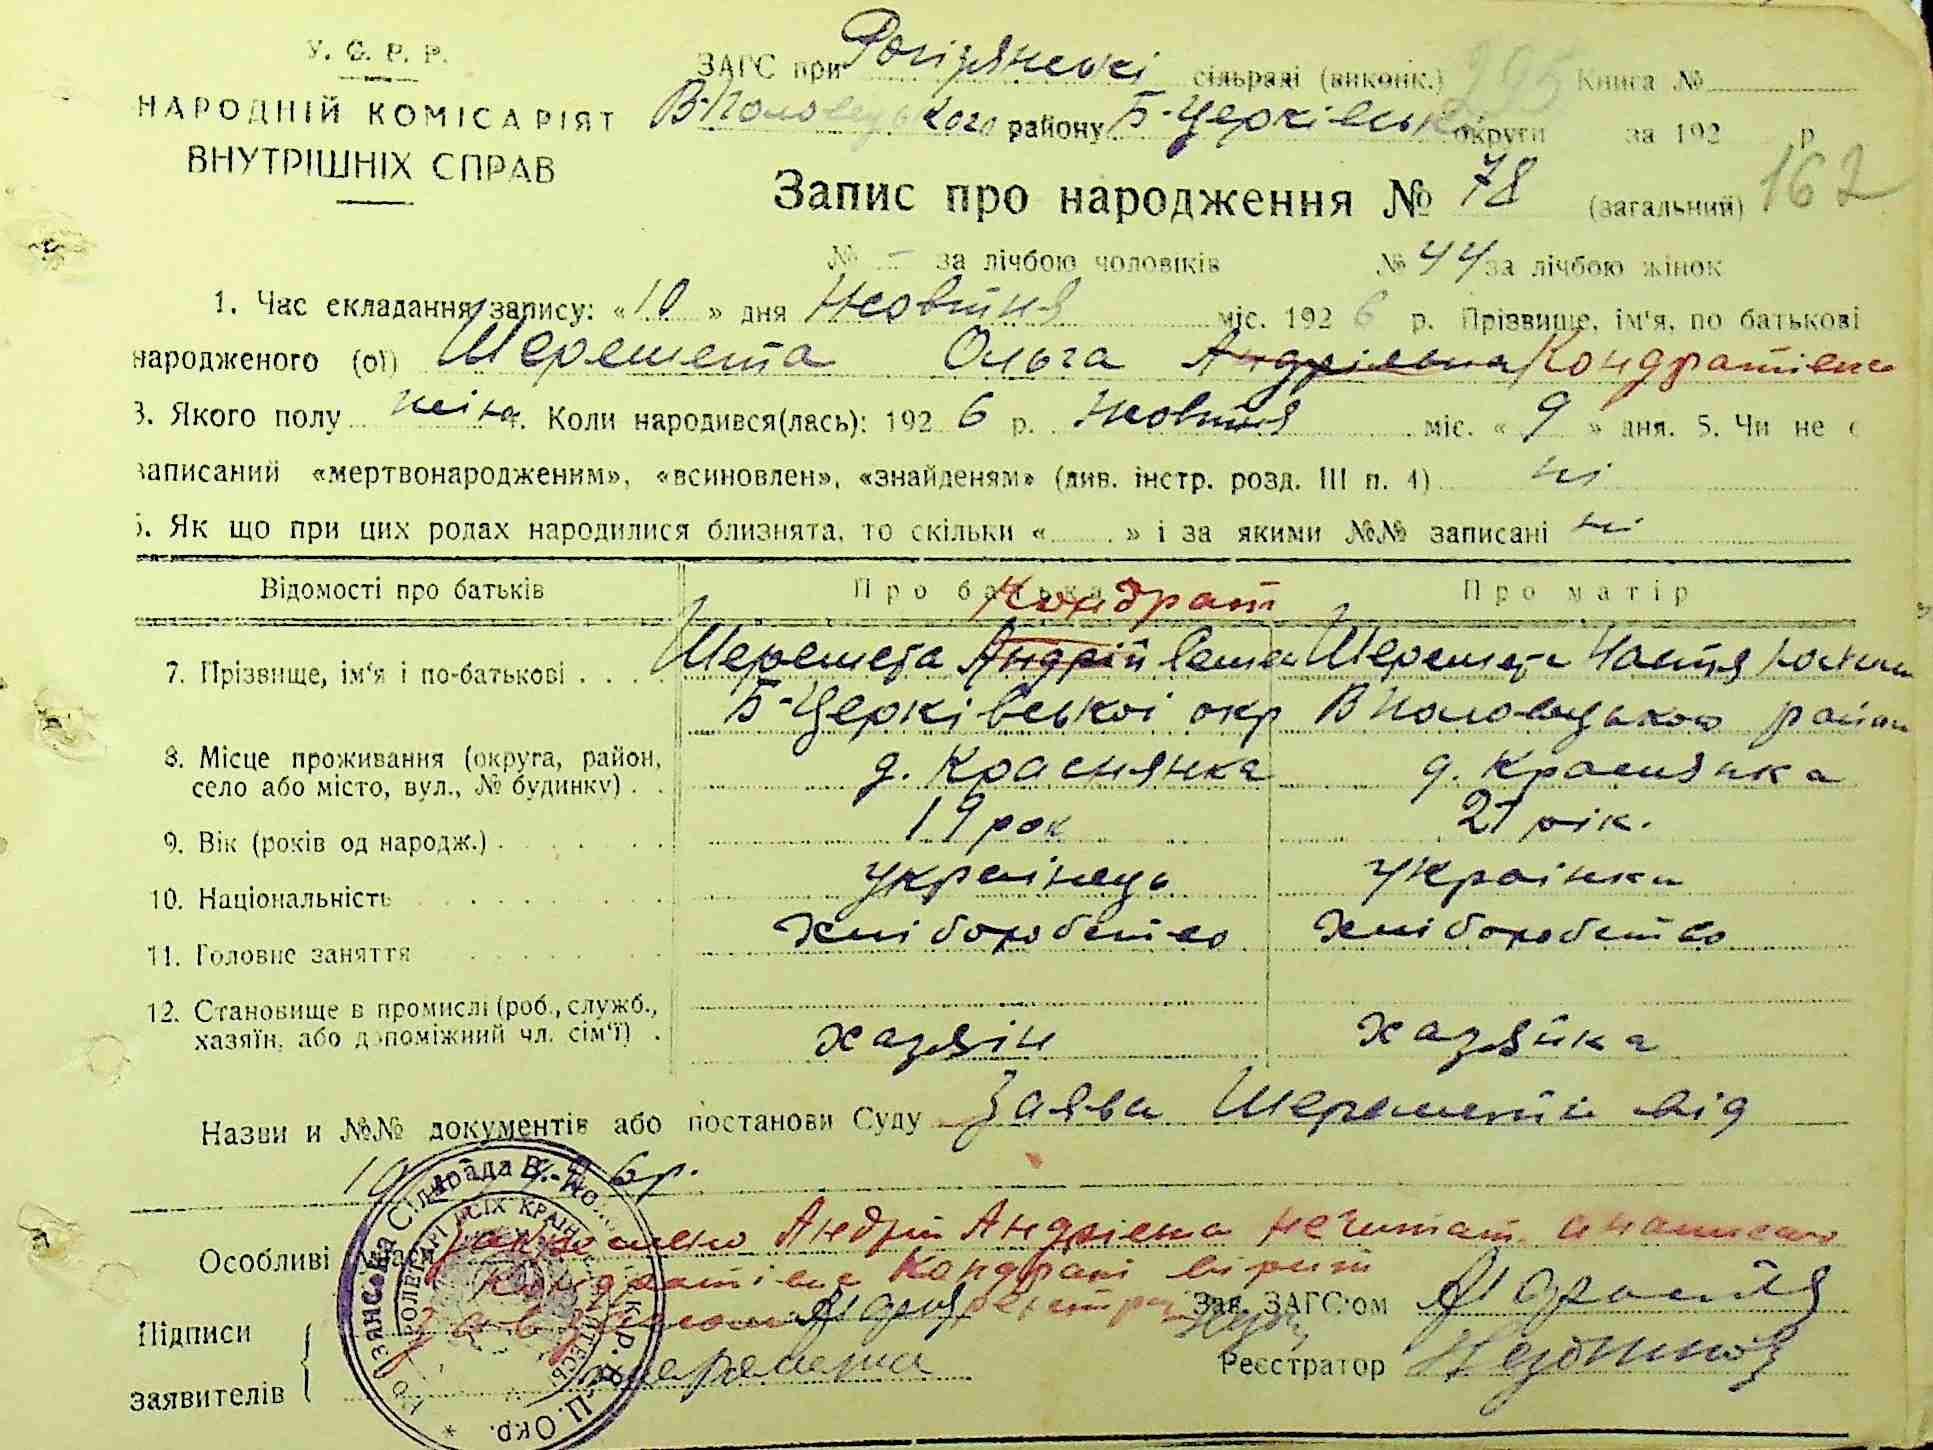 У. С. Р. Р.
НАРОДНІЙ КОМІСАРІЯТ
ВНУТРІШНІХ СПРАВ
ЗАГС при сільраді (виконк.) 295 Книга №
В-Половецького району Б-Церківської округи за 192 р
Запис про народження № 78 (загальний) 162
№ - за лічбою чоловіків № 44 за лічбою жінок
1. Час складання запису: « 10 » дня Жовтня міс. 192 6 р. Прізвище, ім'я, по батькові
народженого (ої) Шеремета Ольга Андріївна Кондратівна
3. Якого полу жіно. Коли народився(лась): 192 6 р. Жовтня міс. « 9 » дня. 5. Чи не є
записаний «мертвонародженим», «всиновлен», «знайденям» (див. інстр. розд. III п. 4) ні
6. Як що при цих родах народилися близнята, то скільки « » і за якими №№ записані ні
Відомості про батьків Про батька Про матір
Кондрат
7. Прізвище, ім'я і по-батькові Шеремета Андрій Шеремета
Б-Церківської окр В Половецького район
8. Місце проживання (округа, район, село або місто, вул., № будинку) д. Краснянка д. Краснянка
9. Вік (років од народж.) 19 рок 21 рік.
10. Національність українець українка
11. Головне заняття хліборобство хліборобство
12. Становище в промислі (роб., служб., хазяїн, або допоміжний чл. сім'ї) хазяїн хазяйка
Назви и №№ документів або постанови Суду Заява Шеремети від
6р.
Особливі Андрій Андріївна не читат. а написано
Кондратівна Кондрат вірит
Підписи
заявителів
Шеремета
Зав. ЗАГС'ом
Реєстратор